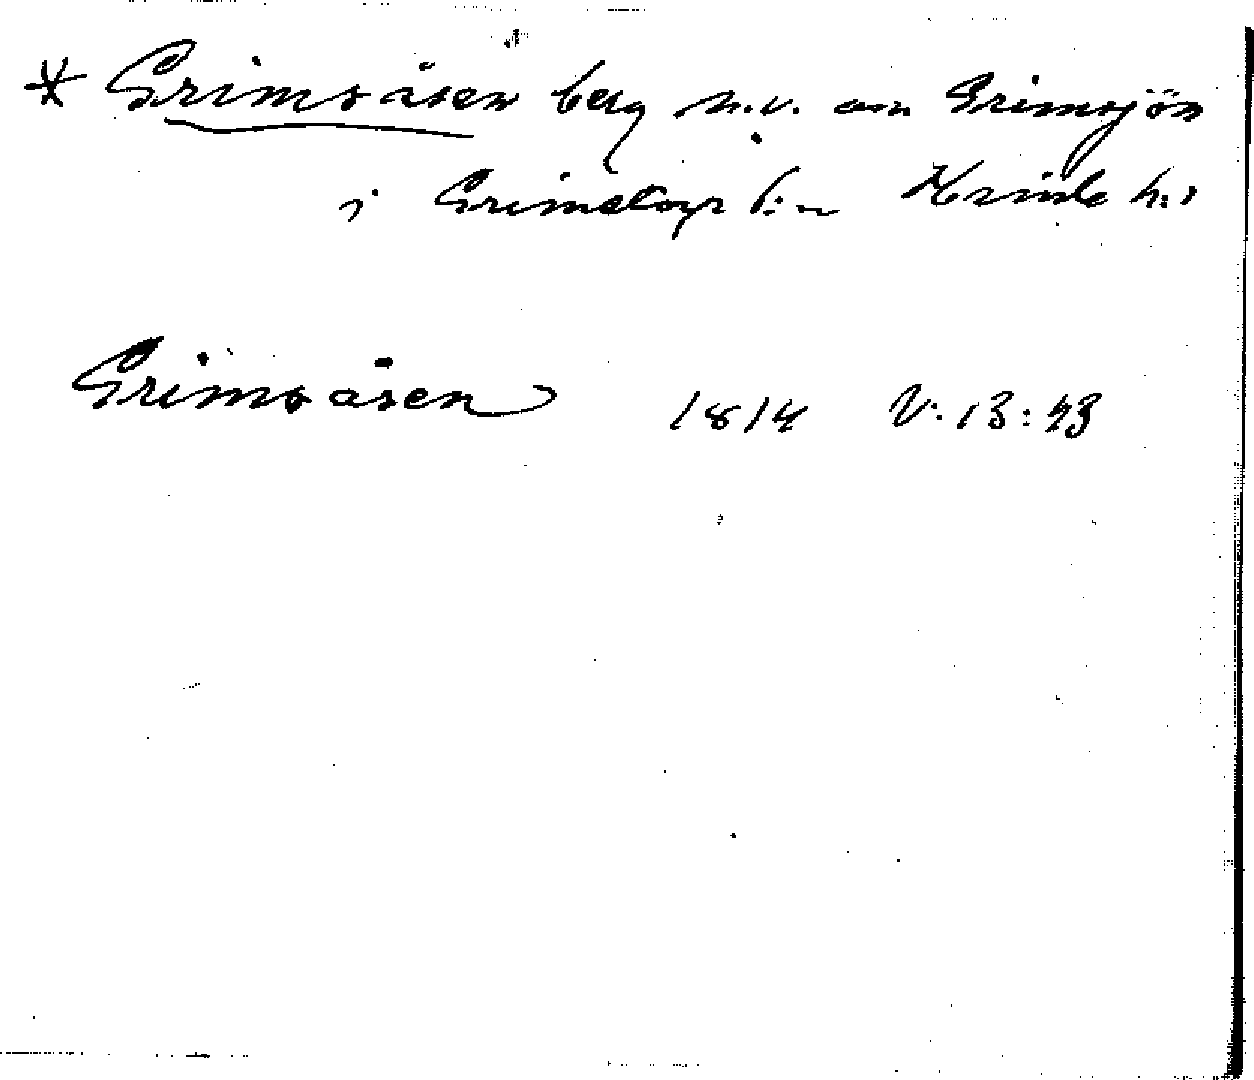 * Grimsåsen berg n.v. om Grimsjön
i Grimstorp l:a Kinds h:d
Grimsåsen 1814 V. 13:43